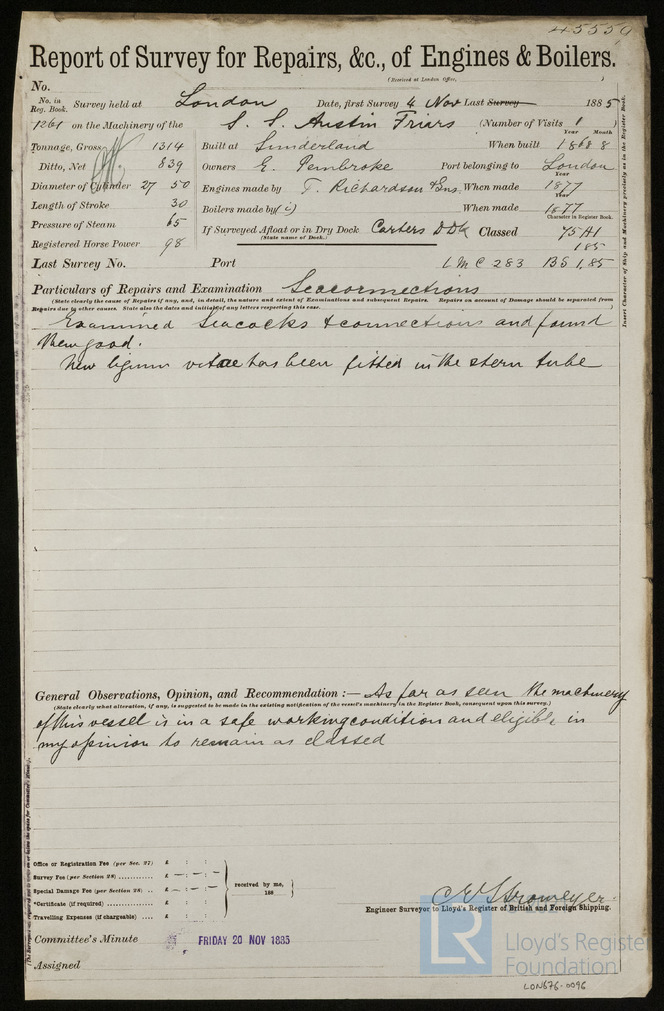 45550
Report of Survey for Repairs, &c., of Engines & Boilers.
(Received at London Office, )
No.
No. in Reg. Book. Survey held at London Date, first Survey 4 Nov Last Survey 1885
1261 on the Machinery of the S. S. Austin Friars (Number of Visits 1 )
Year Month
Tonnage, Gross 1314 Built at Sunderland When built 1868 8
Ditto, Net 839 Owners E. Pembroke Port belonging to London
Year
Diameter of Cylinder 27 50 Engines made by T. Richardson & Sons When made 1877
Year
Length of Stroke 30 Boilers made by ( " ) When made 1877
Character in Register Book.
Pressure of Steam 65 If Surveyed Afloat or in Dry Dock Carters D Dk Classed 75 A1
(State name of Dock.)
Registered Horse Power 98 1.85
Last Survey No. Port LMC 2.83 BS 1,85
Particulars of Repairs and Examination Seaconnections
(State clearly the cause of Repairs if any, and, in detail, the nature and extent of Examinations and subsequent Repairs. Repairs on account of Damage should be separated from
Repairs due to other causes. State also the dates and initials of any letters respecting this case. )
Examined Seacocks & connections and found
them good.
New lignum vitae has been fitted in the stern tube
General Observations, Opinion, and Recommendation :— As far as seen the machinery
(State clearly what alteration, if any, is suggested to be made in the existing notification of the vessel's machinery in the Register Book, consequent upon this survey.)
of this vessel is in a safe working condition and eligible in
my opinion to remain as classed
Office or Registration Fee (per Sec. 27) £ : :
Survey Fee (per Section 28) £ — : — : —
Special Damage Fee (per Section 28) £ — : — : —
*Certificate (if required) £ : :
Travelling Expenses (if chargeable) £ : :
received by me,
188
C E Stromeyer
Engineer Surveyor to Lloyd's Register of British and Foreign Shipping.
Committee's Minute FRIDAY 20 NOV 1885
Assigned
Insert Character of Ship and Machinery precisely as in the Register Book.
LR
Lloyd's Register
Foundation
LON676-0096